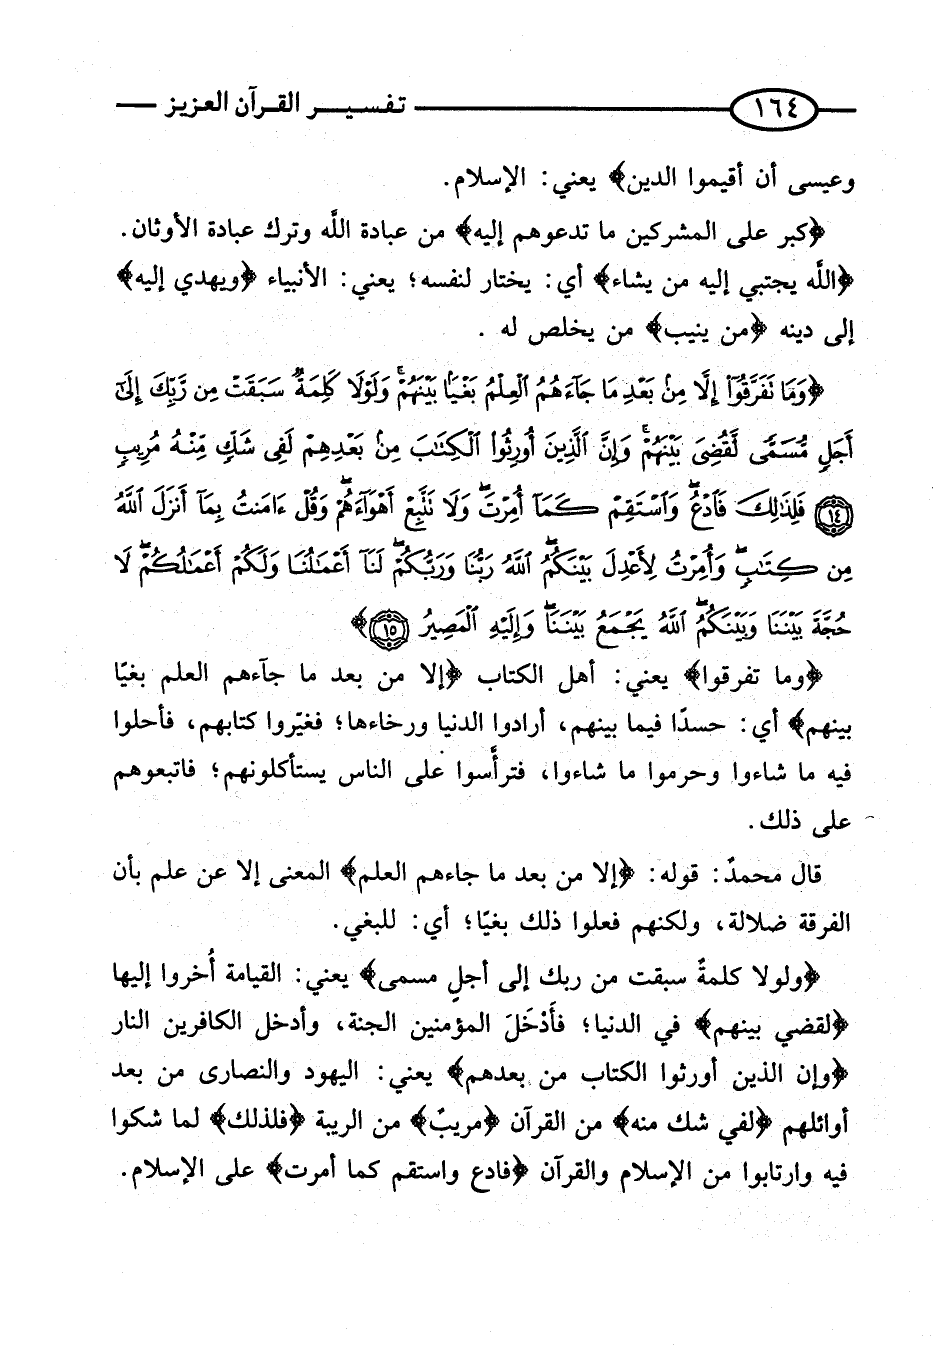 ١٦٤ تفسير القرآن العزيز
وعيسى أن أقيموا الدين﴾ يعني: الإسلام.
﴿كبر على المشركين ما تدعوهم إليه﴾ من عبادة اللَّه وترك عبادة الأوثان.
﴿اللَّه يجتبي إليه من يشاء﴾ أي: يختار لنفسه؛ يعني: الأنبياء ﴿ويهدي إليه﴾
إلى دينه ﴿من ينيب﴾ من يخلص له .
﴿وَمَا تَفَرَّقُوٓا۟ إِلَّا مِنۢ بَعْدِ مَا جَآءَهُمُ ٱلْعِلْمُ بَغْيًۢا بَيْنَهُمْ ۚ وَلَوْلَا كَلِمَةٌ سَبَقَتْ مِن رَّبِّكَ إِلَىٰٓ
أَجَلٍ مُّسَمًّى لَّقُضِىَ بَيْنَهُمْ ۚ وَإِنَّ ٱلَّذِينَ أُورِثُوا۟ ٱلْكِتَٰبَ مِنۢ بَعْدِهِمْ لَفِى شَكٍّ مِّنْهُ مُرِيبٍ
﴿١٤﴾ فَلِذَٰلِكَ فَٱدْعُ ۖ وَٱسْتَقِمْ كَمَآ أُمِرْتَ ۖ وَلَا تَتَّبِعْ أَهْوَآءَهُمْ ۖ وَقُلْ ءَامَنتُ بِمَآ أَنزَلَ ٱللَّهُ
مِن كِتَٰبٍ ۖ وَأُمِرْتُ لِأَعْدِلَ بَيْنَكُمُ ۖ ٱللَّهُ رَبُّنَا وَرَبُّكُمْ ۖ لَنَآ أَعْمَٰلُنَا وَلَكُمْ أَعْمَٰلُكُمْ ۖ لَا
حُجَّةَ بَيْنَنَا وَبَيْنَكُمُ ۖ ٱللَّهُ يَجْمَعُ بَيْنَنَا ۖ وَإِلَيْهِ ٱلْمَصِيرُ ﴿١٥﴾﴾
﴿وما تفرقوا﴾ يعني: أهل الكتاب ﴿إلا من بعد ما جآءهم العلم بغيًا
بينهم﴾ أي: حسدًا فيما بينهم، أرادوا الدنيا ورخاءها؛ فغيّروا كتابهم، فأحلوا
فيه ما شاءوا وحرموا ما شاءوا، فترأَّسوا على الناس يستأكلونهم؛ فاتبعوهم
على ذلك.
قال محمدٌ: قوله: ﴿إلا من بعد ما جاءهم العلم﴾ المعنى إلا عن علم بأن
الفرقة ضلالة، ولكنهم فعلوا ذلك بغيًا؛ أي: للبغي.
﴿ولولا كلمةٌ سبقت من ربك إلى أجلٍ مسمى﴾ يعني: القيامة أُخروا إليها
﴿لقضي بينهم﴾ في الدنيا؛ فأَدْخَلَ المؤمنين الجنة، وأدخل الكافرين النار
﴿وإن الذين أورثوا الكتاب من بعدهم﴾ يعني: اليهود والنصارى من بعد
أوائلهم ﴿لفي شك منه﴾ من القرآن ﴿مريبٌ﴾ من الريبة ﴿فلذلك﴾ لما شكوا
فيه وارتابوا من الإسلام والقرآن ﴿فادع واستقم كما أمرت﴾ على الإسلام.